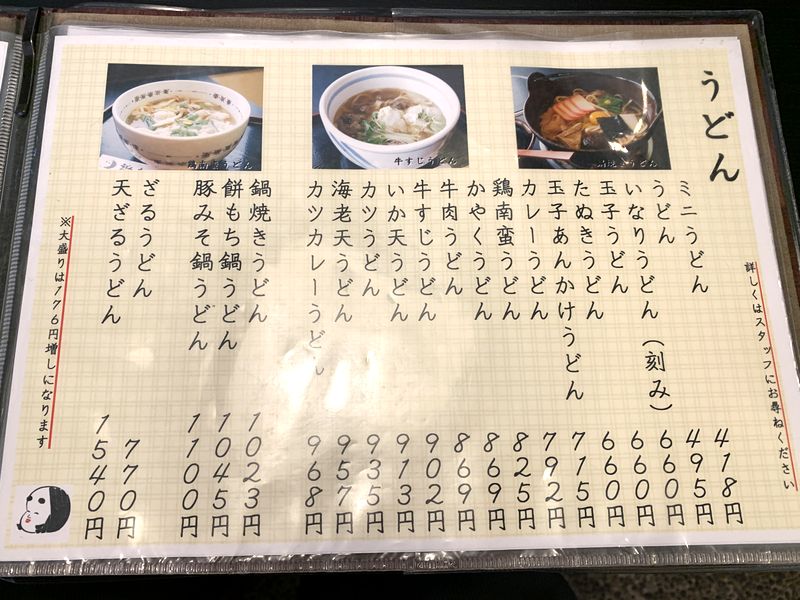 うどん
ミニうどん 418円
うどん 495円
いなりうどん（刻み） 660円
玉子うどん 660円
たぬきうどん 660円
玉子あんかけうどん 715円
カレーうどん 792円
鶏南蛮うどん 825円
かやくうどん 869円
牛肉うどん 869円
牛すじうどん 902円
いか天うどん 913円
カツうどん 935円
海老天うどん 957円
カツカレーうどん 968円
鍋焼きうどん 1023円
餅もち鍋うどん 1045円
豚みそ鍋うどん 1100円
ざるうどん 770円
天ざるうどん 1540円
※大盛りは176円増しになります
詳しくはスタッフにお尋ねください
牛すじうどん
鍋焼きうどん